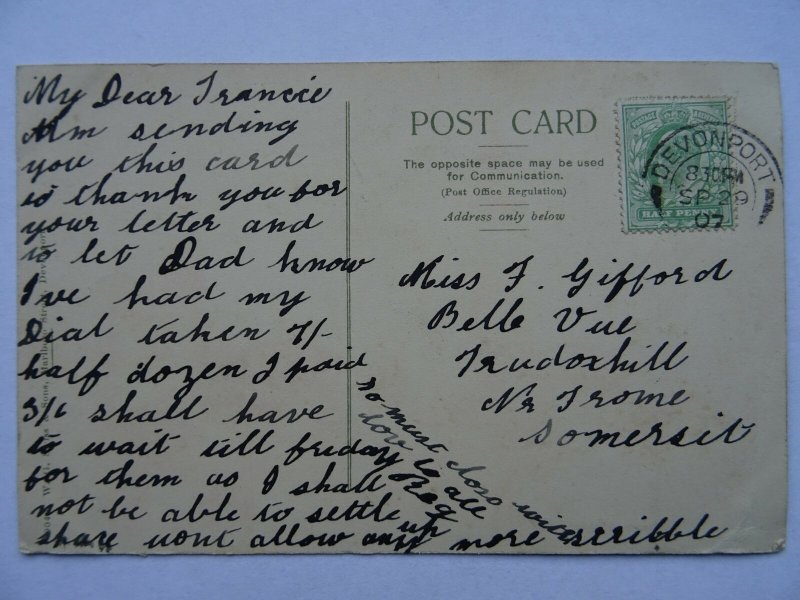 My Dear Francie
Am sending
you this card
to thank you for
your letter and
to let Dad know
I've had my
Dial taken 7/-
half dozen I paid
3/6 shall have
to wait till friday
for them as I shall
not be able to settle up
share wont allow any more scribble
so must close with
love to all
Reg
POST CARD
The opposite space may be used
for Communication.
(Post Office Regulation)
Address only below
POSTAGE
HALF PENNY
DEVONPORT
8 30 PM
SP 29
07
Miss F. Gifford
Belle Vue
Trudoxhill
Nr Frome
Somersit